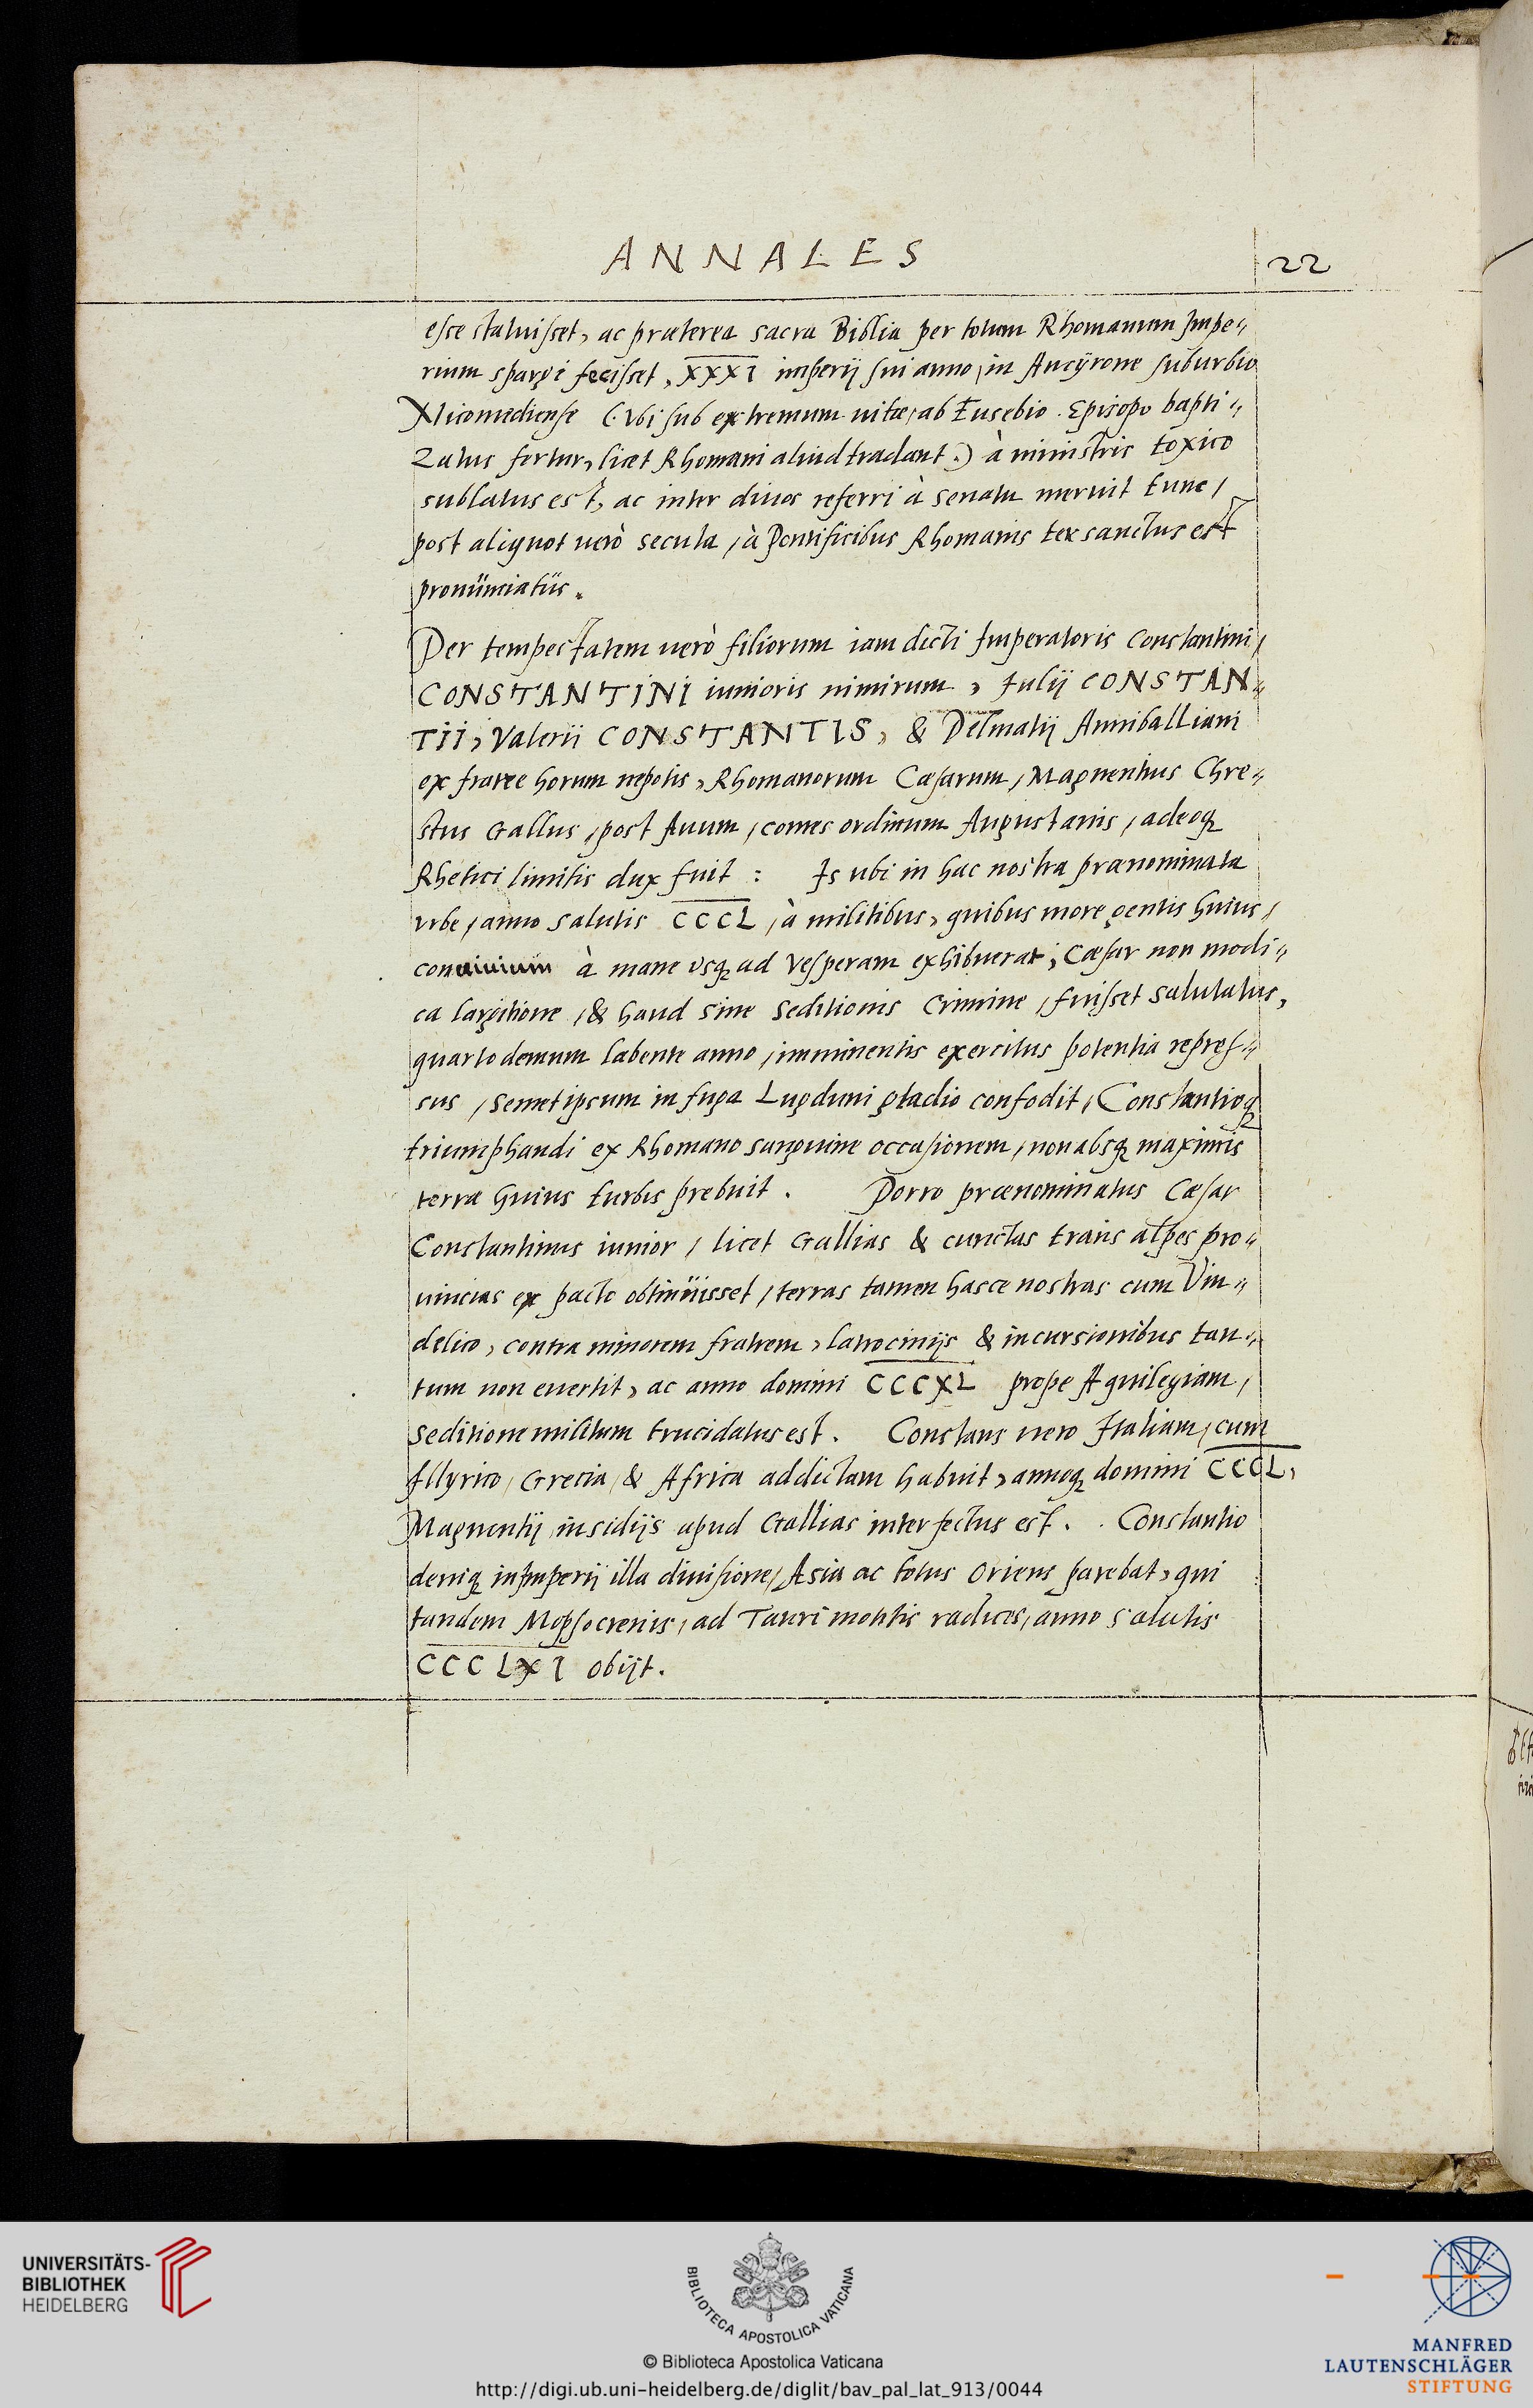 ANNALES
22
esse statuisset, ac præterea sacra Biblia per totum Rhomanum Impe„
rium spargi fecisset, XXXI imperij sui anno, in Ancÿrone suburbio
Nicomediense (. Vbi sub extremum uitæ, ab Eusebio Episcopo bapti„
zatus fertur, licet Rhomani aliud tradant.) à ministris toxico
sublatus est, ac inter diuos referri à senatu meruit tunc /
post aliquot uerò secula, à Pontificibus Rhomanis ter sanctus est
pronunciatus.
Per tempestatem uerò filiorum iam dicti Imperatoris Constantini,
CONSTANTINI iunioris nimirum, Iulij CONSTAN„
TII, Valerii CONSTANTIS, & Delmatij Anniballiani
ex fratre horum nepotis, Rhomanorum Cæsarum, Magnentius Chre„
stus Gallus, post Auum, comes ordinum Augustanis, adeoq
Rhetici limitis dux fuit : Is ubi in hac nostra prænominata
vrbe, anno salutis CCCL, à militibus, quibus more gentis huius,
conuiuium à mane vsq ad vesperam exhibuerat, Cæsar non modi„
ca largitione, & haud sine seditionis crimine, fuisset salutatus,
quarto demum labente anno, imminentis exercitus potentia repres„
sus, semetipsum in fuga Lugduni gladio confodit, Constantioq
triumphandi ex Rhomano sanguine occasionem, non absq maximis
terræ huius turbis prebuit. Porro prænominatus Cæsar
Constantinus iunior, licet Gallias & cunctas trans alpes pro„
uincias ex pacto obtinuisset, terras tamen hasce nostras cum Vin„
delico, contra minorem fratrem, latrocinijs & incursionibus tan„
tum non euertit, ac anno domini CCCXL prope Aquilegiam,
seditione militum trucidatus est. Constans uero Italiam, cum
Illyrico, Grecia, & Africa addictam habuit, annoq domini CCCL,
Magnentij insidijs apud Gallias interfectus est. Constantio
deniq in Imperij illa diuisione, Asia ac totus Oriens parebat, qui
tandem Mopsocrenis, ad Tauri montis radices, anno salutis
CCCLXI obijt.
UNIVERSITÄTS-
BIBLIOTHEK
HEIDELBERG
BIBLIOTECA APOSTOLICA VATICANA
© Biblioteca Apostolica Vaticana
http://digi.ub.uni-heidelberg.de/diglit/bav_pal_lat_913/0044
MANFRED
LAUTENSCHLÄGER
STIFTUNG